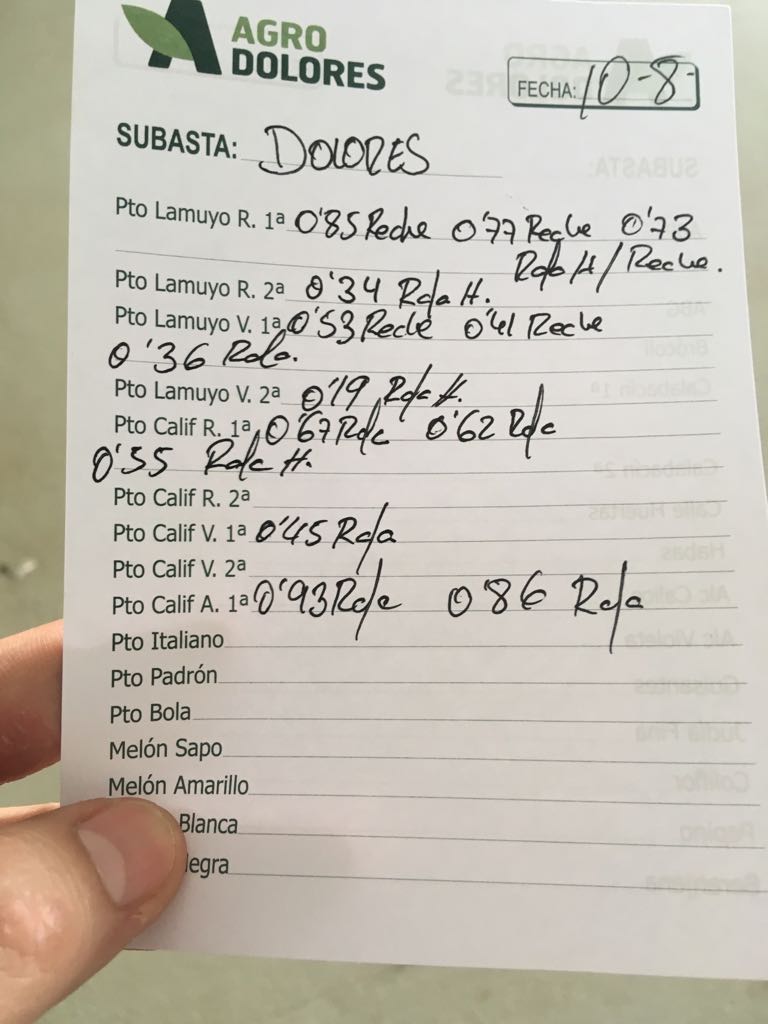 AGRO
DOLORES
FECHA: 10-8-
SUBASTA: DOLORES
Pto Lamuyo R. 1ª 0'85 Reche 0'77 Reche 0'73
Roja H/Reche.
Pto Lamuyo R. 2ª 0'34 Roja H.
Pto Lamuyo V. 1ª 0'53 Reche 0'41 Reche
0'36 Roja.
Pto Lamuyo V. 2ª 0'19 Roja H.
Pto Calif R. 1ª 0'67 Roja 0'62 Roja
0'55 Roja H.
Pto Calif R. 2ª
Pto Calif V. 1ª 0'45 Roja
Pto Calif V. 2ª
Pto Calif A. 1ª 0'93 Roja 0'86 Roja
Pto Italiano
Pto Padrón
Pto Bola
Melón Sapo
Melón Amarillo
Blanca
legra